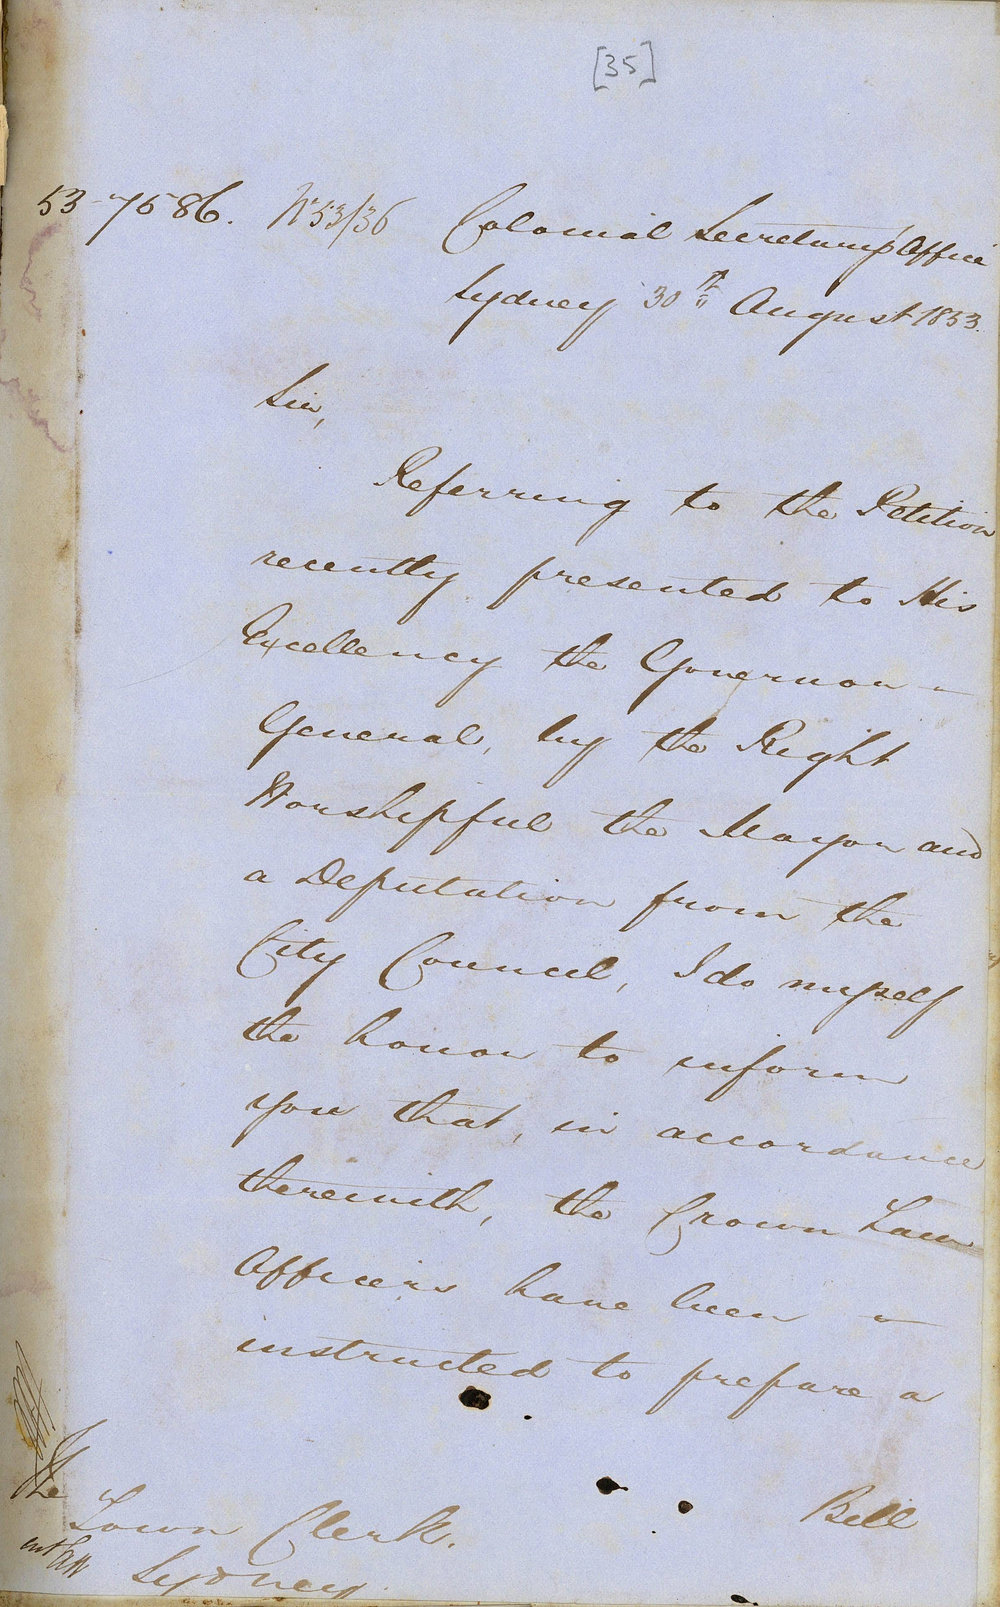 [35]
53-7586. No 53/36 Colonial Secretary's Office
Sydney 30th August 1853.
Sir,
Referring to the Petition
recently presented to His
Excellency the Governor-
General, by the Right
Worshipful the Mayor and
a Deputation from the
City Council, I do myself
the honor to inform
you that, in accordance
therewith, the Crown Law
Officers have been
instructed to prepare a
Bill
The
Town Clerk.
Sydney